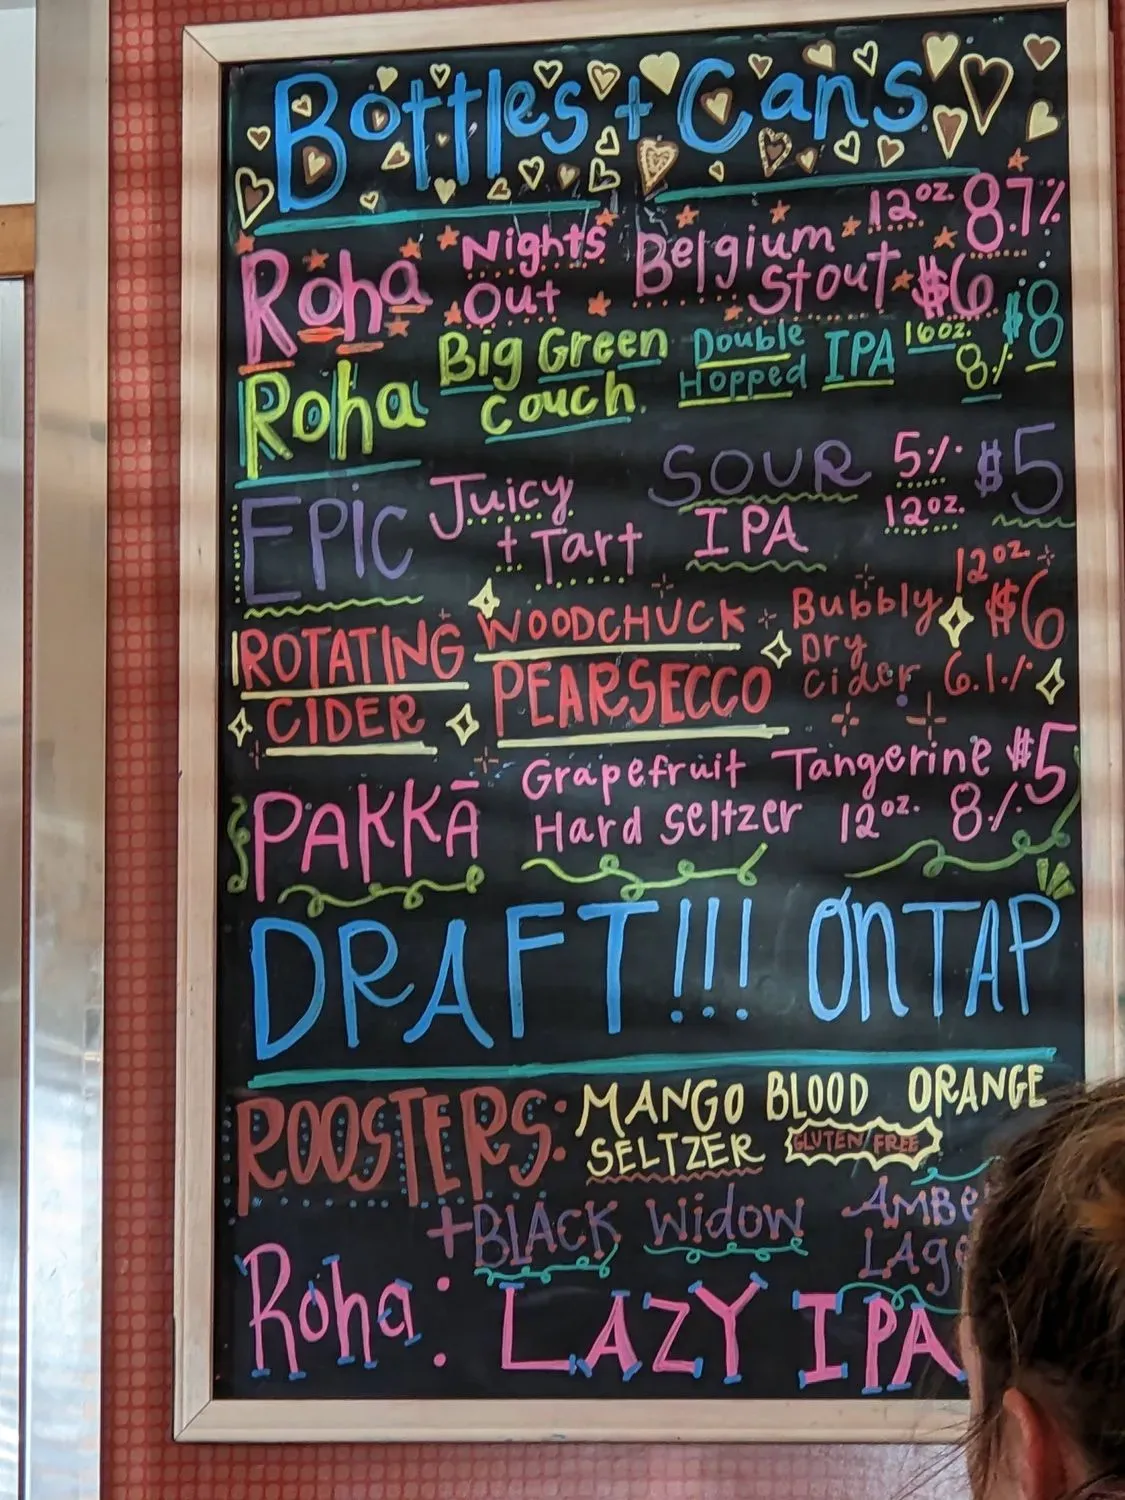 Bottles + Cans
Roha Nights Out Belgium Stout 12oz 8.7% $6
Roha Big Green Couch Double Hopped IPA 16oz. 8% $8
EPIC Juicy + Tart SOUR IPA 5% 12oz. $5
ROTATING CIDER WOODCHUCK PEARSECCO Bubbly Dry Cider 6.1% 12oz $6
PAKKĀ Grapefruit Tangerine Hard Seltzer 12oz. 8% $5
DRAFT!!! ON TAP
ROOSTERS: MANGO BLOOD ORANGE
SELTZER GLUTEN FREE
+ BLACK WIDOW AMBE
LAGE
Roha: LAZY IPA